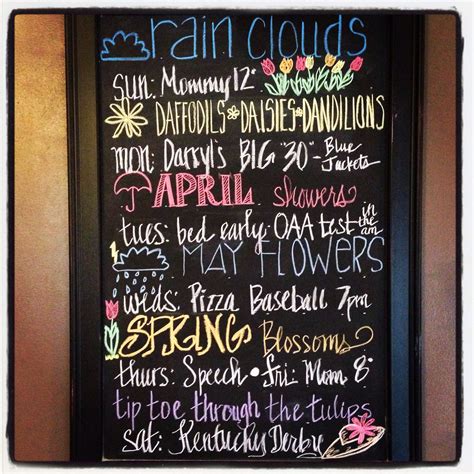 rain clouds
sun: Mommy 12°
DAFFODILS*DAISIES*DANDILIONS
mon: Darryl's BIG "30" - Blue Jackets
APRIL showers
tues: bed early: OAA test in the am
MAY FLOWERS
weds: Pizza Baseball 7pm
SPRING Blossoms
thurs: Speech • fri: Mom 8°
tip toe through the tulips
sat: Kentucky Derby